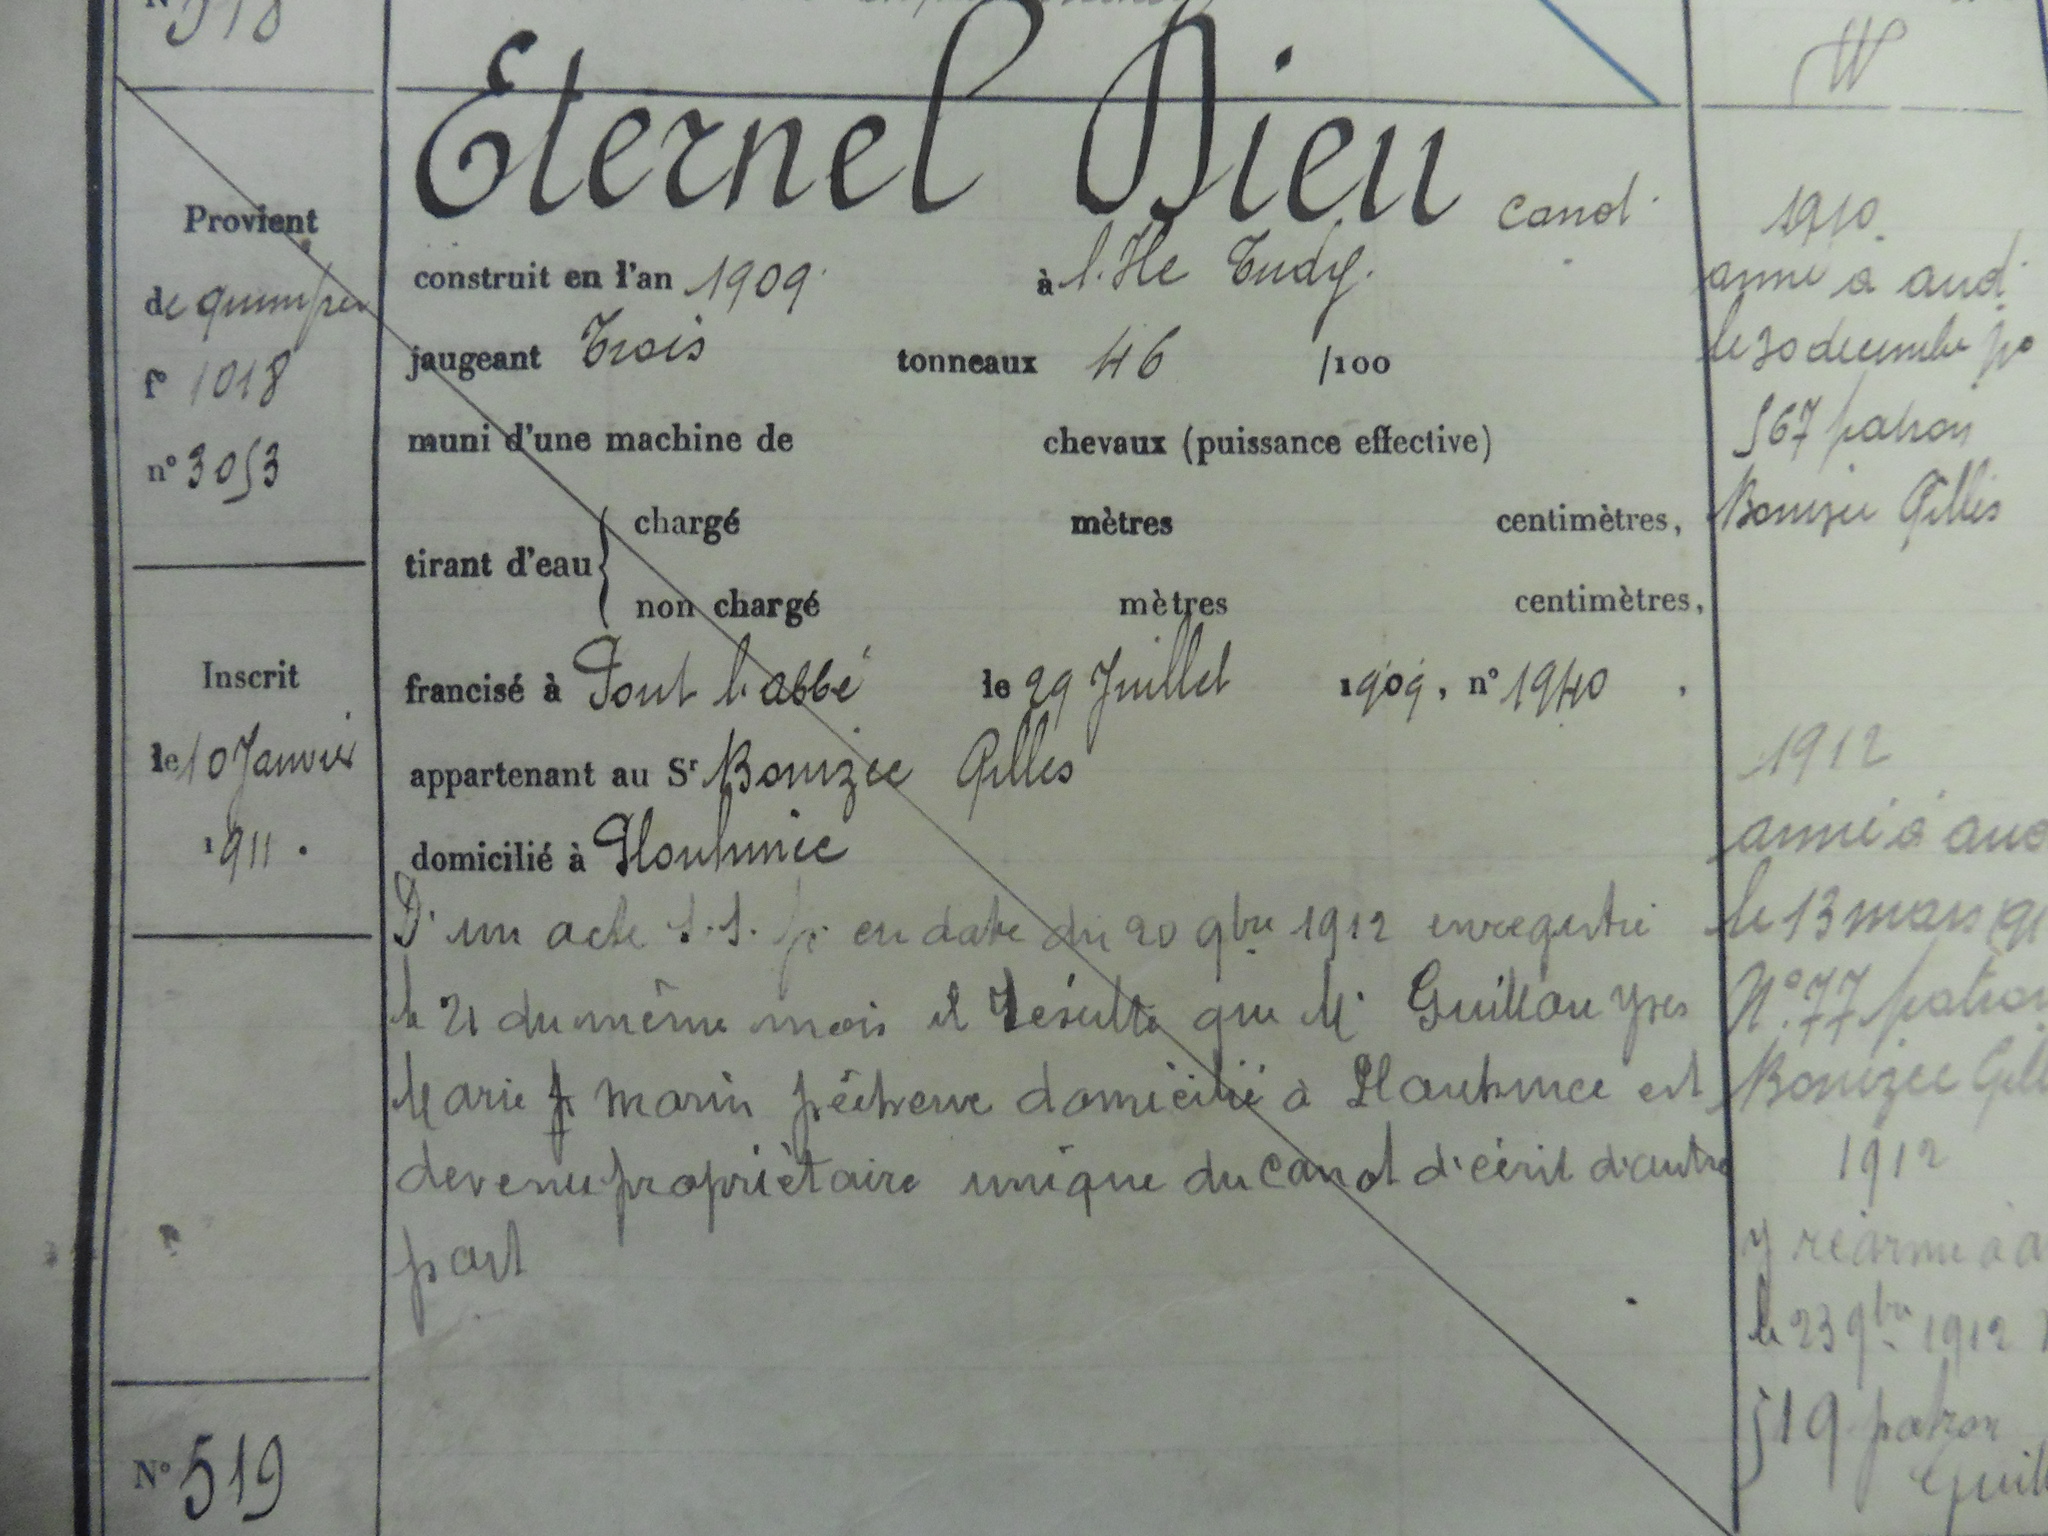 N° 518
Eternel Dieu canot
Provient
de quimper
f° 1018
n° 3053
Inscrit
le 10 Janvier
1911.
N° 519
construit en l'an 1909 à l'Ile Tudy.
jaugeant Trois tonneaux 46 /100
muni d'une machine de chevaux (puissance effective)
tirant d'eau { chargé mètres centimètres,
non chargé mètres centimètres,
francisé à Pont l'abbé le 29 Juillet 1909, n° 1940,
appartenant au Sr Bonizec Gilles
domicilié à Plouhinec
D'un acte s.s.p. en date du 20 9bre 1912 enregistré
le 21 du même mois il résulte que Mr Guillou Yves
Marie marin pêcheur domicilié à Plouhinec est
devenu propriétaire unique du canot d'écrit d'autre
part
1910.
armé à aud.
le 30 decembre
567 patron
Bonizec Gilles
1912
armé à aud
le 13 mars
N° 77 patron
Bonizec Gill
1912
réarmé à a
le 23 9bre 1912
519 patron
Guill